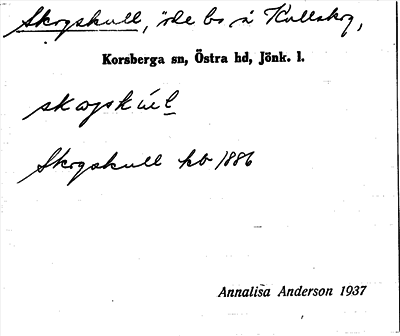 Skogskull, öde bs å Kullskog,
Korsberga sn, Östra hd, Jönk. l.
skogskul
Skogskull kb 1886
Annalisa Anderson 1937